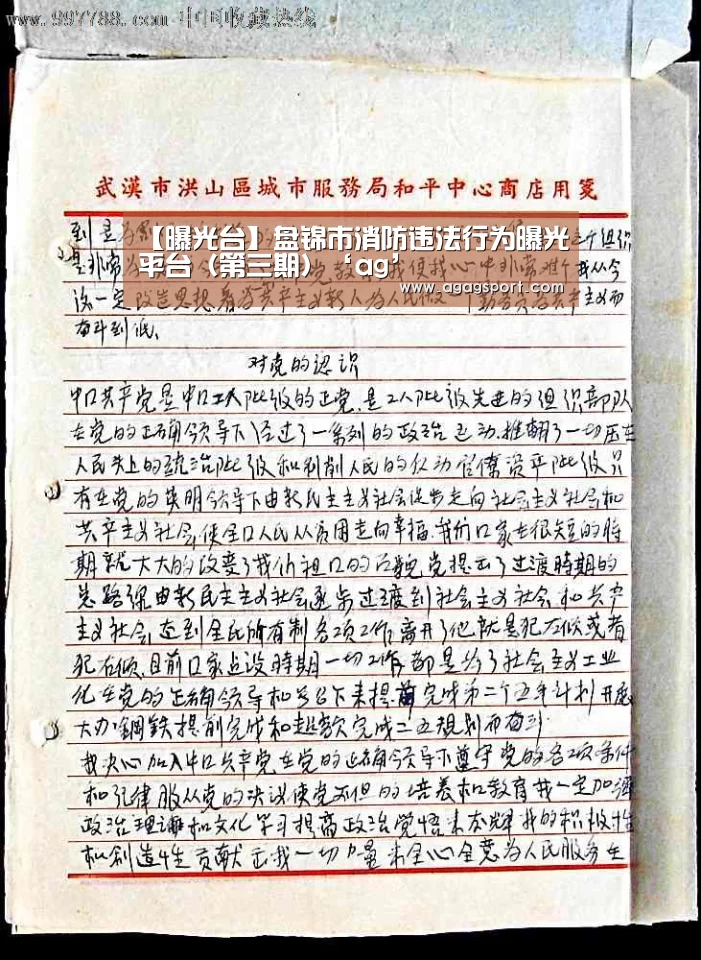 www.997788.com 中国收藏热线
武漢市洪山區城市服務局和平中心商店用箋
【曝光台】盘锦市消防违法行为曝光
平台（第三期）‘ag’
www.agagsport.com
我从今
后一定改造思想
主义而
奋斗到底、
对党的认识
中口共产党是中口工人阶级的政党、是工人阶级先进的组织部队
在党的正确领导下经过了一系列的政治运动、推翻了一切压在
人民头上的统治阶级和剥削人民的反动官僚资产阶级只
有在党的英明领导下由新民主主义社会逐步走向社会主义社会和
共产主义社会、使全口人民从贫困走向幸福、我们口家在很短的時
期就大大的改变了我们祖口的面貌党提出了过渡時期的
总路线由新民主主义社会逐步过渡到社会主义社会和共产
主义社会、达到全民所有制各项工作離开了他就是犯左倾或者
犯右倾、目前口家建设時期一切工作都是为了社会主义工业
化在党的正确领导和号召下来提前完成第二个五年计划开展
大办鋼鉄提前完成和超额完成二五规划而奋斗
我决心加入中口共产党在党的正确领导下遵守党的各项条件
和纪律服从党的决议使党不但的培养和教育我一定加强
政治理论和文化学习提高政治觉悟来发挥我的积极性
和创造性贡献出我一切力量来全心全意为人民服务在